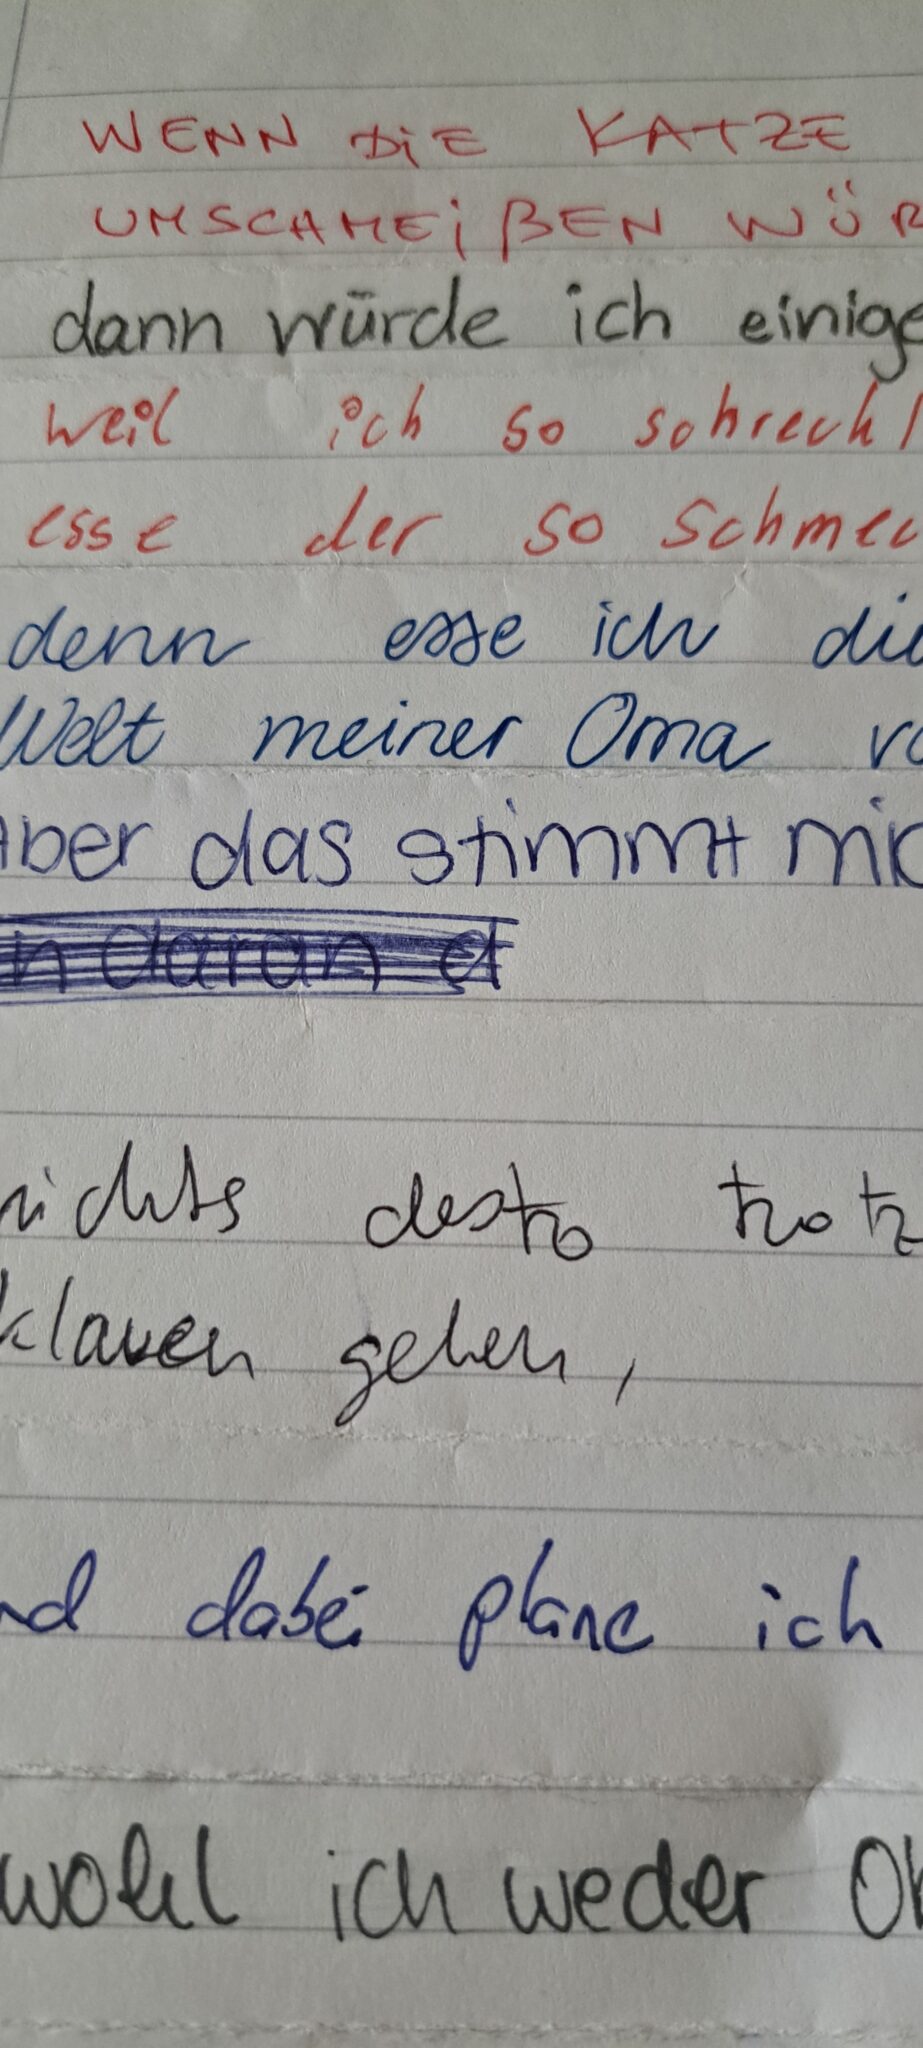 WENN DIE KATZE
UMSCHMEIßEN WÜR
dann würde ich einige
weil ich so schreckl
esse der so schmec
denn esse ich die
Welt meiner Oma vo
Aber das stimmt nic
n daran d
nichts desto trotz
klauen gehen,
nd dabei plane ich
wohl ich weder Ob